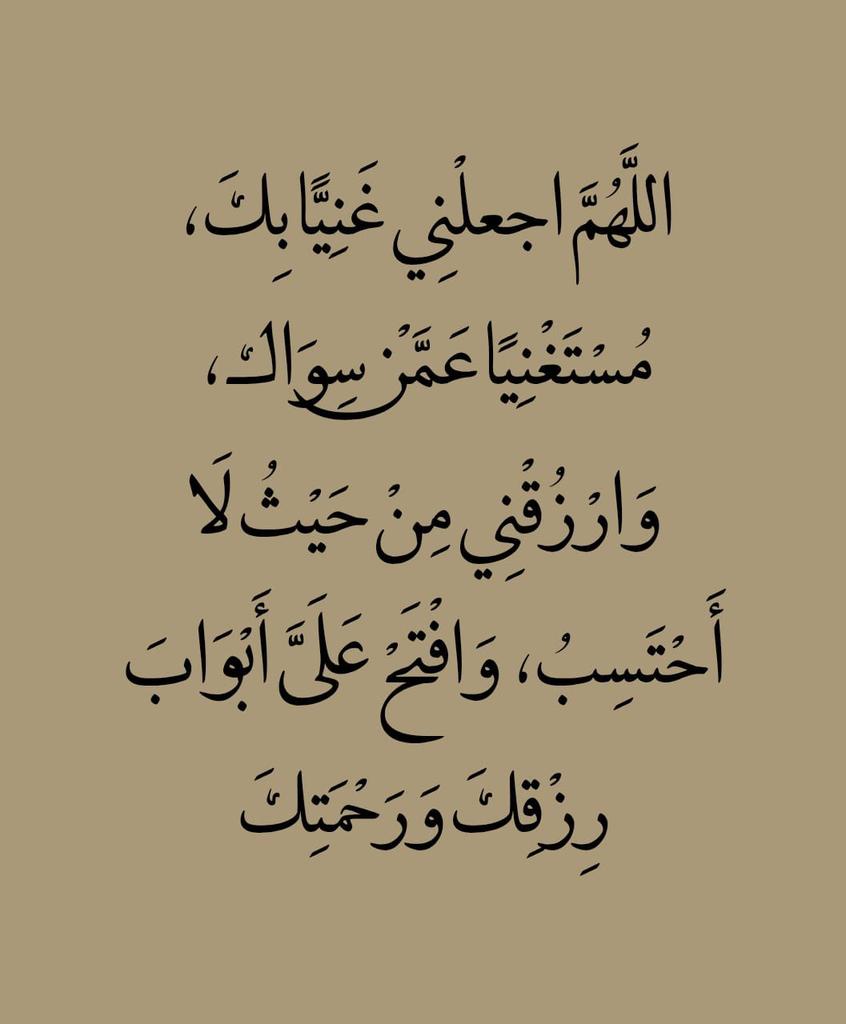 اللَّهُمَّ اجعلْنِي غَنِيًّا بِكَ،
مُسْتَغْنِيًا عَمَّنْ سِوَاك،
وَارْزُقْنِي مِنْ حَيْثُ لَا
أَحْتَسِبُ، وَافْتَحْ عَلَيَّ أَبْوَابَ
رِزْقِكَ وَرَحْمَتِكَ